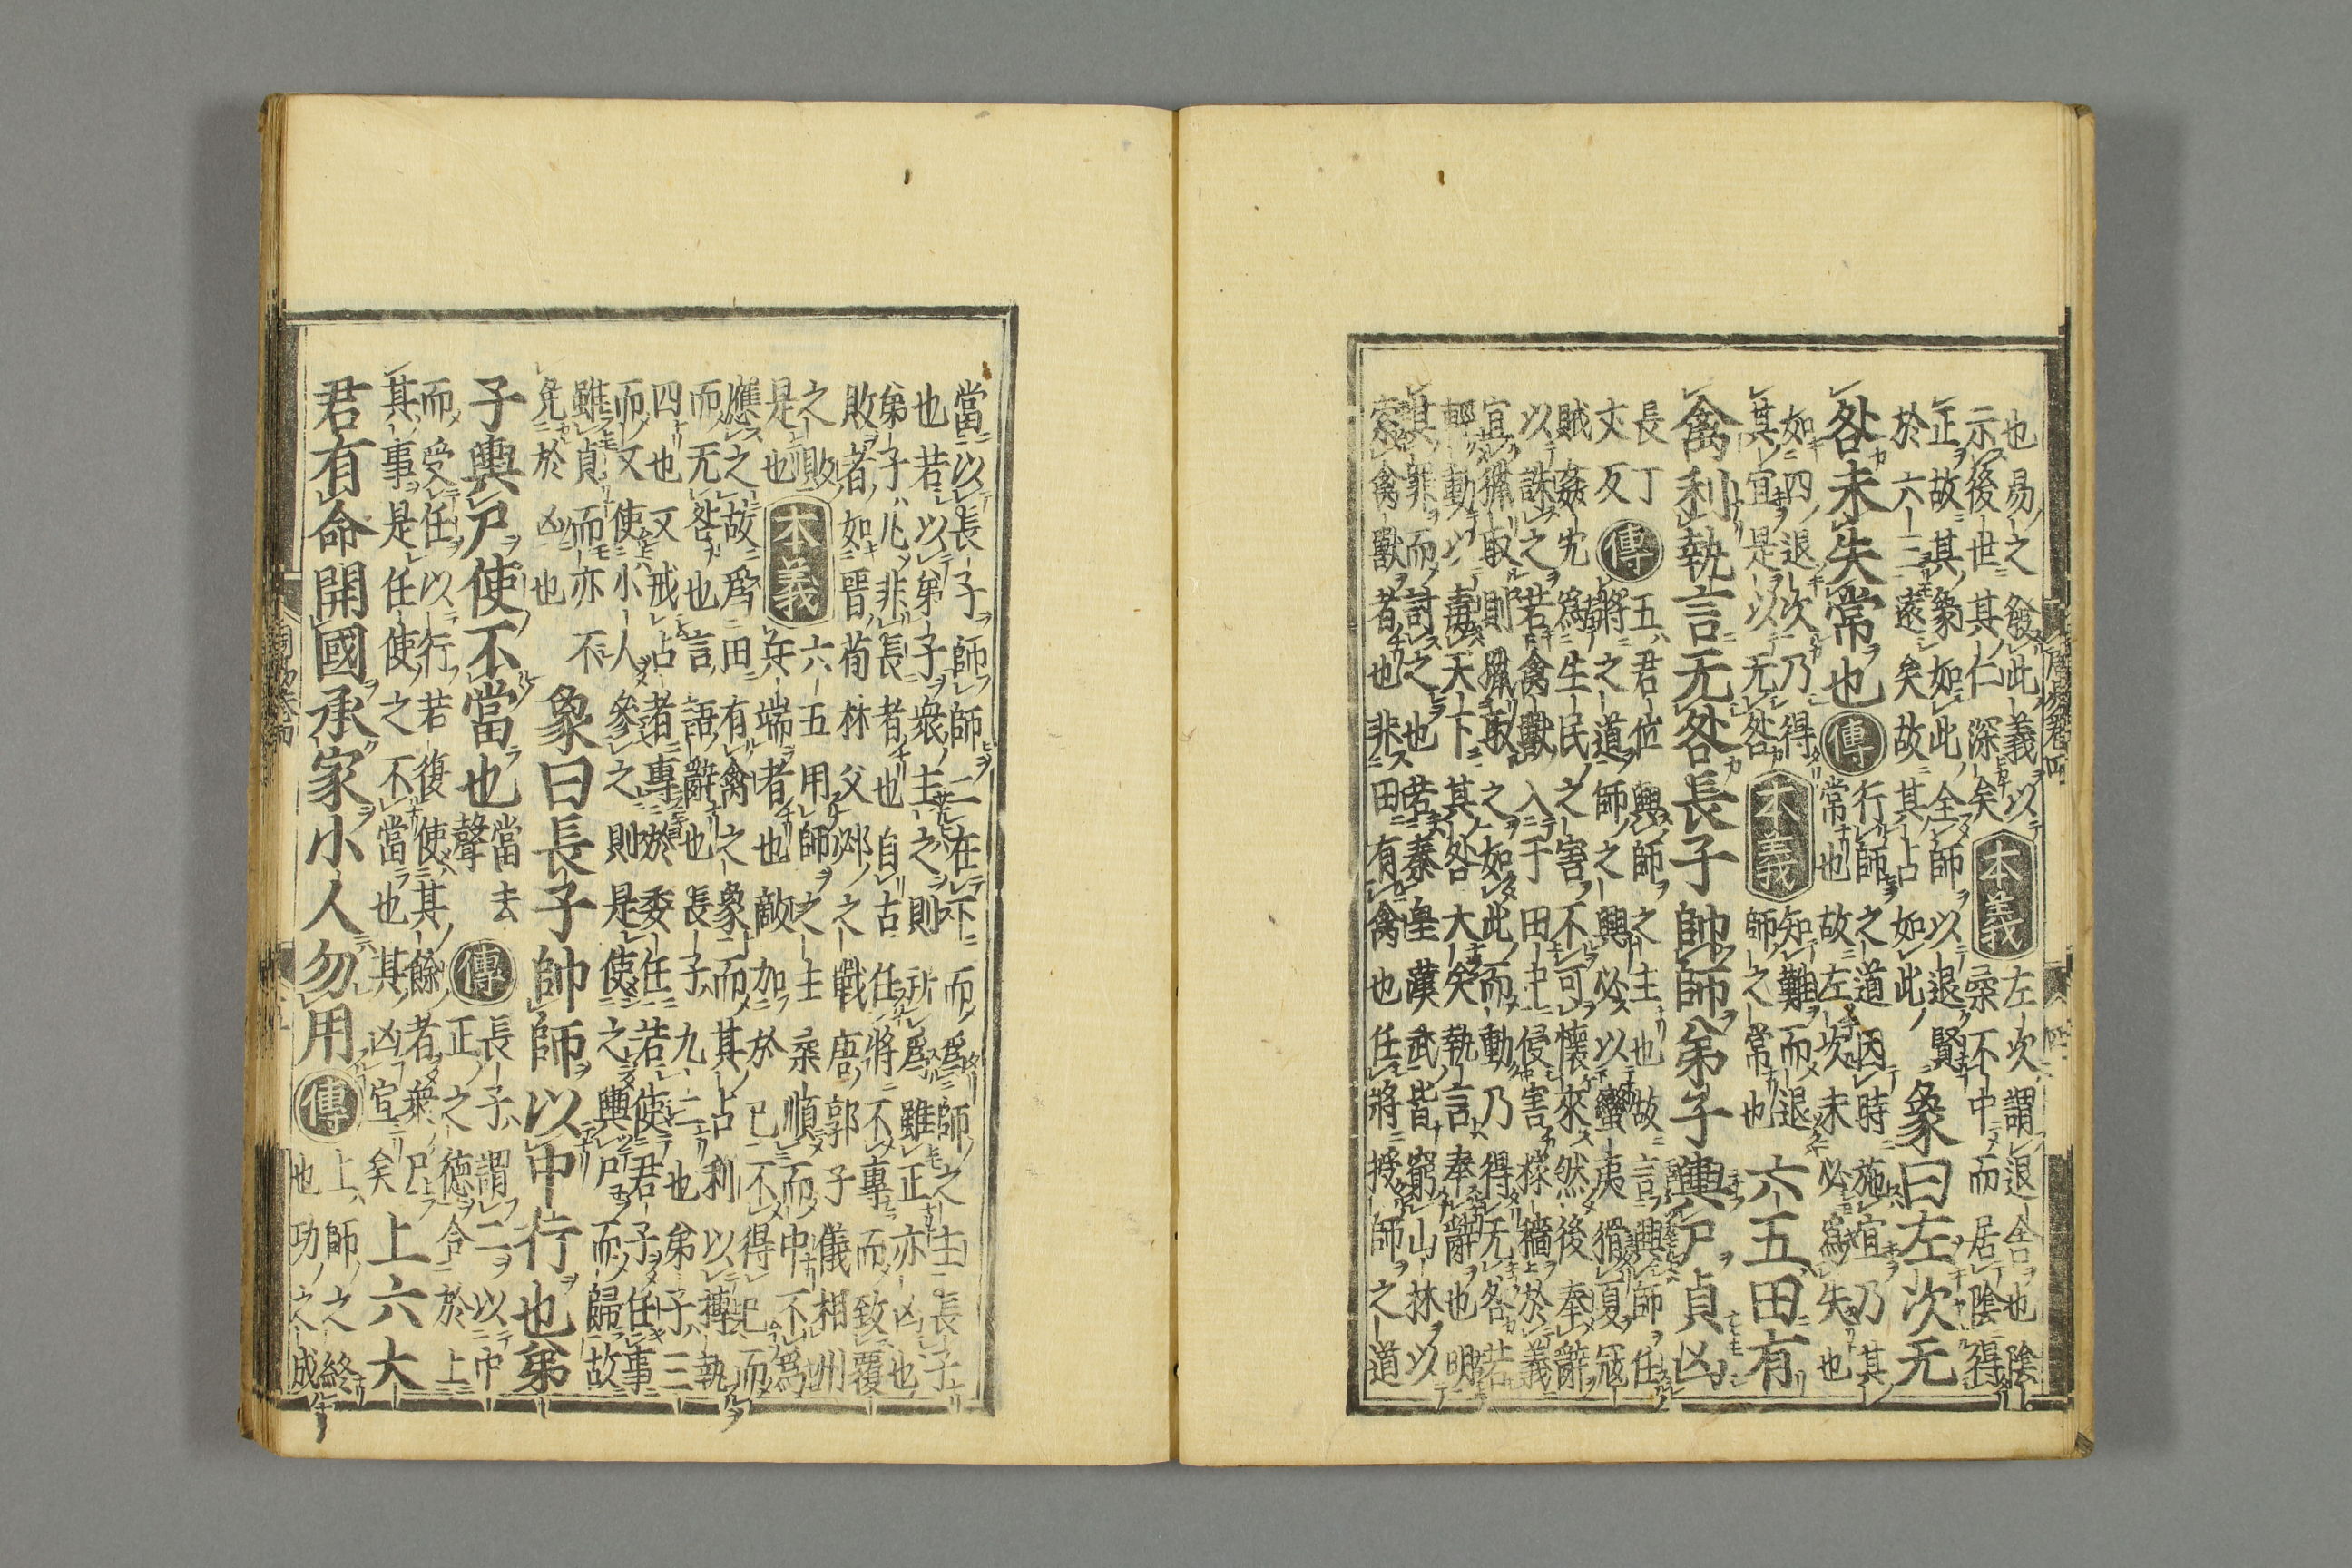 也易之發此義以
示後世其仁深矣
本義
左次謂退舍也陰
柔不中而居陰得
正故其象如此全師以退賢
於六三遠矣故其占如此
象曰左次无
咎未失常也
傳
行師之道因時施宜乃其
常也故左次未必爲失也
如四退次乃得
其宜是以无咎
本義
知難而退
師之常也
六五田有
禽利執言无咎長子帥師弟子輿尸貞凶
長丁
丈反
傳
五君位興師之主也故言興師任
將之道師之興必以蠻夷猾夏冦
賊姦宄爲生民之害不可懷來然後奉辭
以誅之若禽獸入于田中侵害稼穡於義
宜獵取則獵取之如此而動乃得无咎若
輕動以毒天下其咎大矣執言奉辭也明
其罪而討之也若秦皇漢武皆窮山林以
索禽獸者也非田有禽也任將授師之道
當以長子帥師二在下而爲師之主長子
也若以弟子衆主之則所爲雖正亦凶也
弟子凡非長者也自古任將不專而致覆
敗者如晉荀林父邲之戰唐郭子儀相州
之敗
是也
本義
六五用師之主柔順而中不爲
兵端者也敵加於已不得已而
應之故爲田有禽之象而其占利以搏執
而无咎也言語辭也長子九二也弟子三
四也又戒占者專於委任若使君子任事
而又使小人參之則是使之輿尸而歸故
雖貞而亦不
免於凶也
象曰長子帥師以中行也弟
子輿尸使不當也
當去
聲
傳
長子謂二以中
正之德合於上
而受任以行若復使其餘者衆尸
其事是任使之不當也其凶宜矣
上六大
君有命開國承家小人勿用
傳
上師之終
也功之成